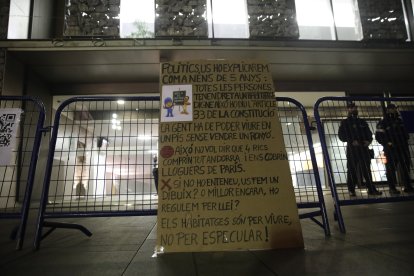 POLÍTICS, US HO EXPLICAREM
COM A NENS DE 5 ANYS:
TOTES LES PERSONES
TENEN DRET A UN HABITATGE
DIGNE AIXÒ HO DIU L'ARTICLE
33 DE LA CONSTITUCIÓ
LA GENT HA DE PODER VIURE EN
UN PIS SENSE VENDRE UN RONYÓ
AIXÒ NO VOL DIR QUE 4 RICS
COMPRIN TOT ANDORRA I ENS COBRIN
LLOGUERS DE PARÍS.
SI NO HO ENTENEU, US FEM UN
DIBUIX? O MILLOR ENCARA, HO
REGULEM PER LLEI?
ELS HABITATGES SÓN PER VIURE,
NO PER ESPECULAR!